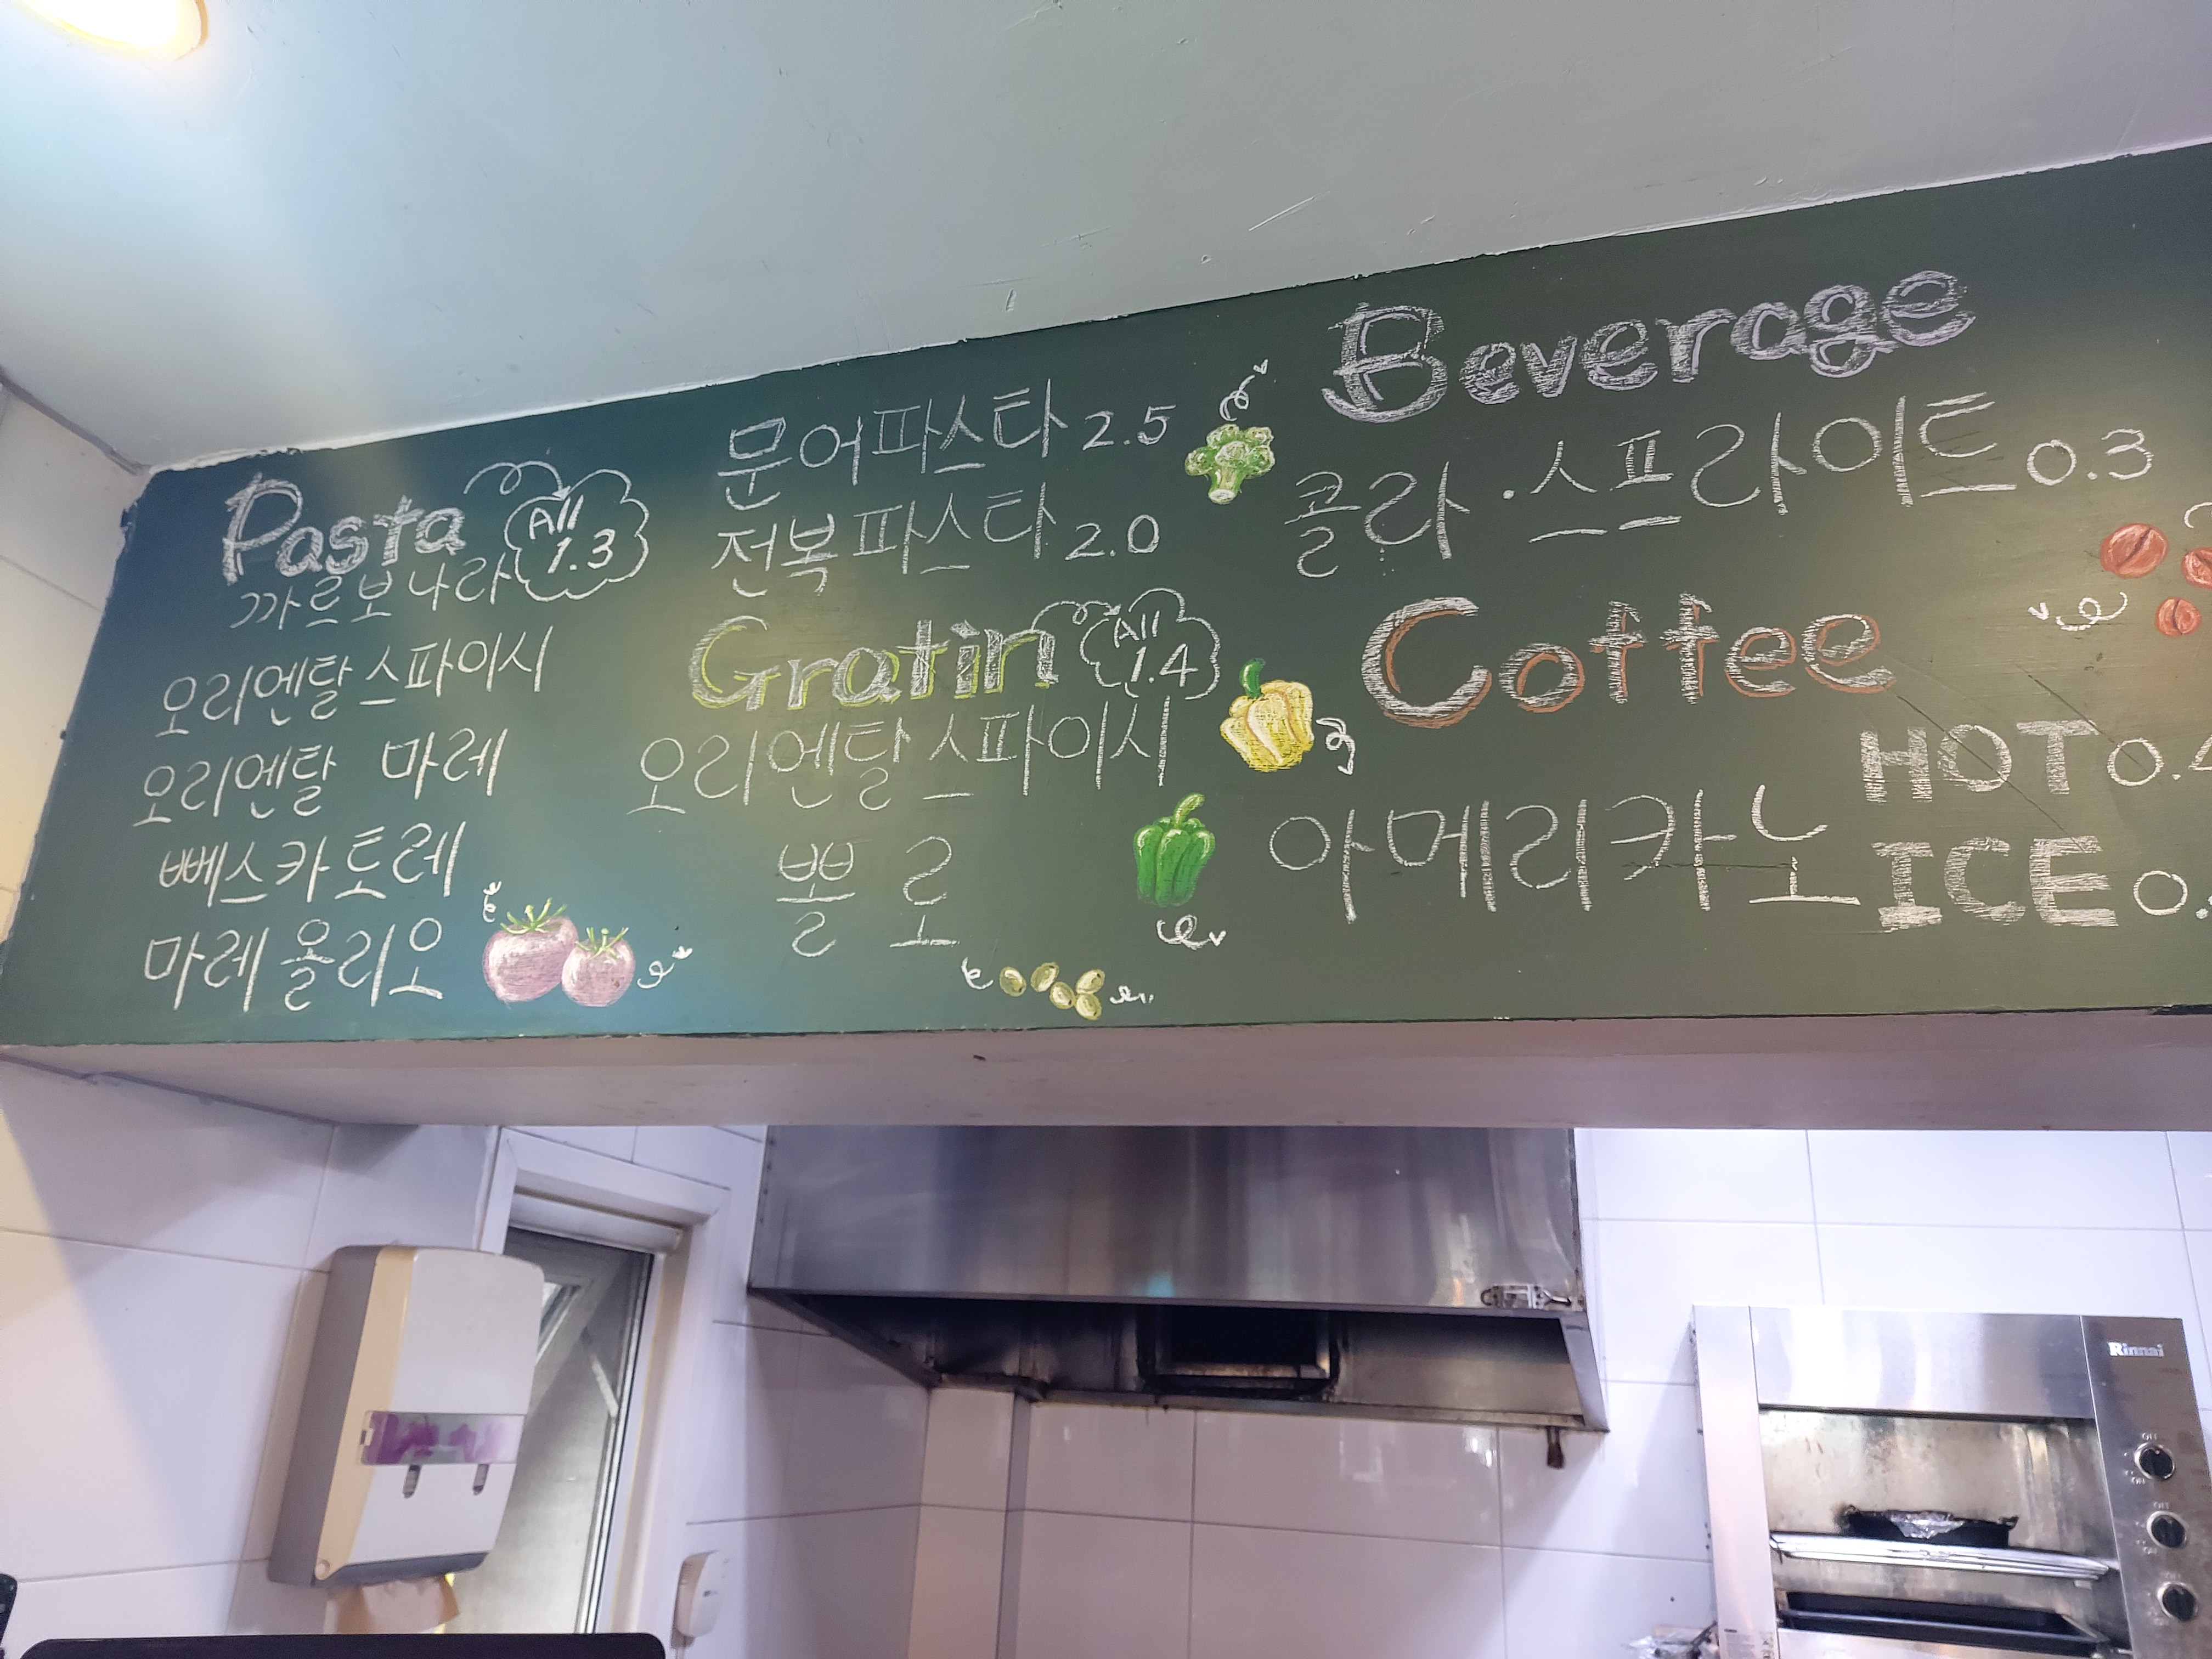 Pasta All 1.3
까르보나라
오리엔탈 스파이시
오리엔탈 마레
뻬스카토레
마레 올리오
문어파스타 2.5
전복파스타 2.0
Gratin All 1.4
오리엔탈 스파이시
뽈로
Beverage
콜라·스프라이트 0.3
Coffee
아메리카노
HOT 0.4
ICE 0.
Rinnai